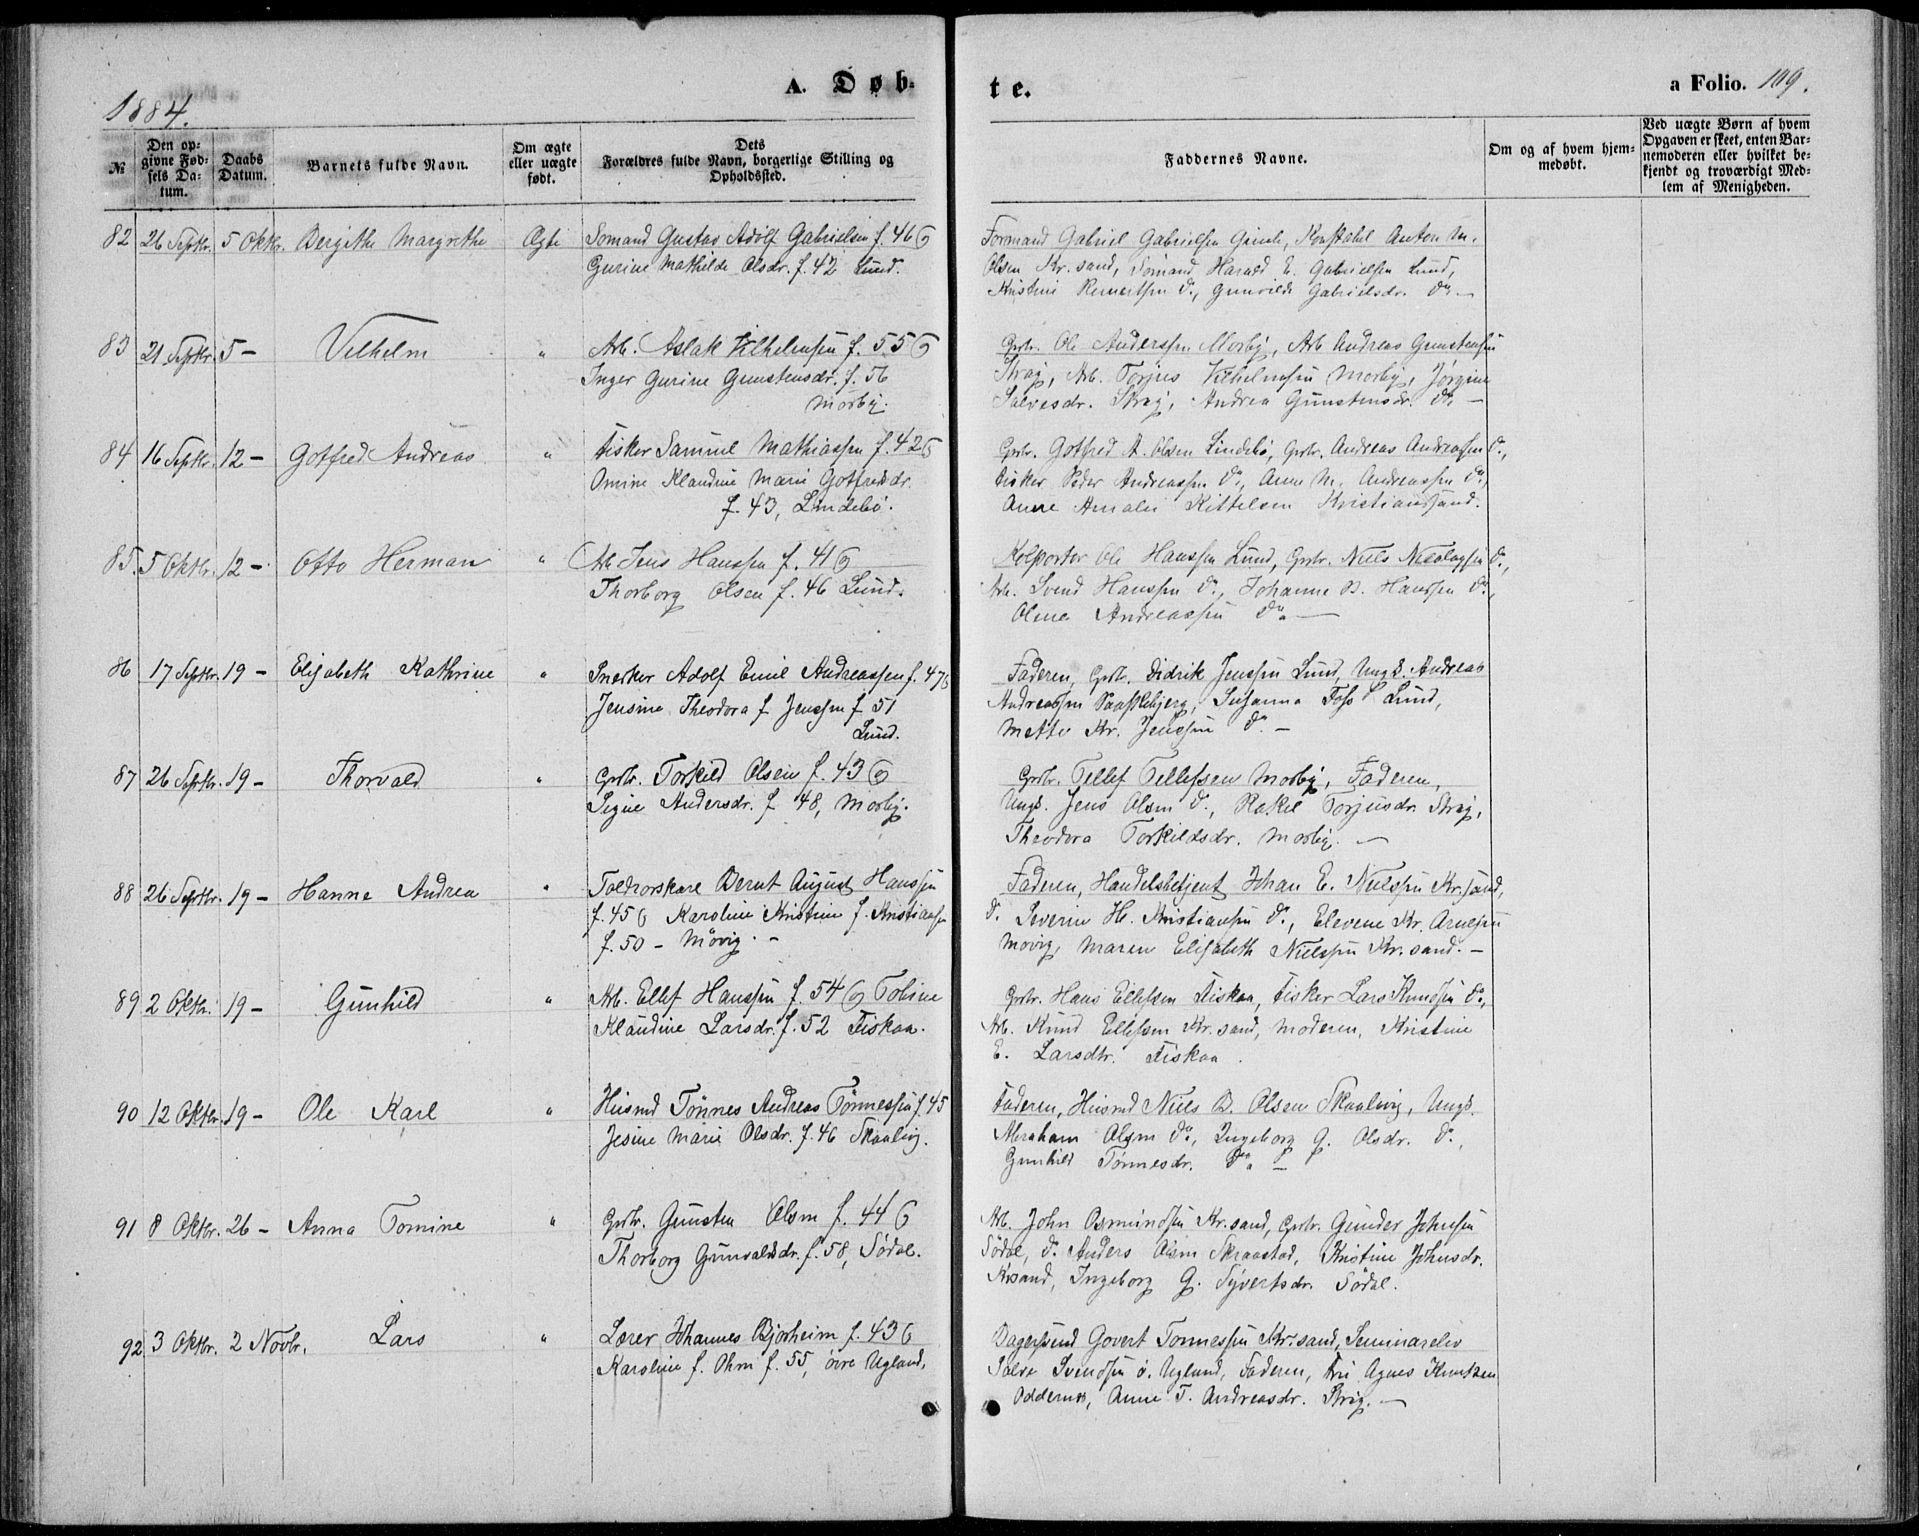 1884.
A. Døb-
te.
a Folio. 109.
№
Den op-
givne Fød-
sels Da-
tum.
Daabs
Datum.
Barnets fulde Navn.
Om ægte
eller uægte
født.
Dets
Forældres fulde Navn, borgerlige Stilling og
Opholdssted.
Faddernes Navne.
Om og af hvem hjem-
medøbt.
Ved uægte Børn af hvem
Opgaven er skeet, enten Bar-
nemoderen eller hvilket be-
kjendt og troværdigt Med-
lem af Menigheden.
82 26 Septbr. 5 Oktbr. Bergithe Margrethe Ægte Sømand Gustav Adolf Gabrielsen f. 46 &
Gurine Mathilde Olsdr. f. 42 Lund.
Formand Gabriel Gabrielsen Gimle, Konstabel Anton M.
Olsen Kr.sand, Sømand Harald E. Gabrielsen Lund,
Kristine Reinertsen do, Gunvilde Gabrielsdr. do —
83 21 Septbr. 5 — Vilhelm " Arb. Aslak Vilhelmsen f. 55 &
Inger Gurine Gunstensdr. f. 56
Mosby.
Grbr. Ole Anderssen Mosby, Arb Andreas Gunstensen
Straj, Arb. Torjus Vilhelmsen Mosby, Jørgine
Salvesdr. Straj, Andrea Gunstensdr. do —
84 16 Septbr. 12 — Gotfred Andreas " Fisker Samuel Mathiassen f. 42 &
Omine Klandine Marie Gotfredsdr.
f. 43, Lindebø.
Grbr. Gotfred A. Olsen Lindebø, Grbr. Andreas Andreassen do,
Fisker Peder Andreassen do, Anne M. Andreassen do,
Anne Amalie Kittelsen Kristianssand.
85. 5 Oktbr. 12 — Otto Herman " Arb Jens Hanssen f. 41 &
Thorborg Olsen f. 46 Lund.
Kolportør Ole Hanssen Lund, Grbr. Niels Nicolaysen do,
Arb. Svend Hanssen do, Johanne B. Hanssen do,
Olene Andreassen do —
86 17 Septbr. 19 — Elisabeth Kathrine " Snekker Adolf Emil Andreassen f. 47 &
Jensine Theodora f Jenssen f 51
Lund.
Faderen, Grbr. Didrik Jenssen Lund, Ungk. Andreas
Andreassen, Susanna Foss Lund,
Mette Kr. Jenssen do —
87 26 Septbr. 19 — Thorvald " Grbr. Torkild Olsen f. 43 &
Signe Andersdr. f 48, Mosby.
Grbr. Tellef Tellefsen Mosby, Faderen,
Ungk. Jens Olsen do, Rakel Torjusdr. Straj,
Theodora Torkildsdr. Mosby. —
88 26 Septbr. 19 — Hanne Andrea " Toldrorskarl Bernt August Hanssen
f. 45 & Karoline Kristine f. Kristiansen
f. 50 — Møvig. —
Faderen, Handelsbetjent Johan E. Nielssen Kr.sand,
do Severin H. Kristiansen do, Elevene Kr. Arnesen
Møvig, Maren Elisabeth Nielssen Kr.sand. —
89 2 Oktbr. 19 — Gunhild " Arb. Ellef Hanssen f. 54 & Tobine
Klaudine Larsdr. f. 52 Fiskaa.
Grbr. Hans Ellefsen Fiskaa, Fisker Lars Knudsen do,
Arb. Knud Ellefsen Kr.sand, Moderen, Kristine
E. Larsdtr. Fiskaa.
90 12 Oktbr. 19 — Ole Karl " Husmd Tønnes Andreas Tønnessen f. 45
Jesine Marie Olsdr. f. 46 Skaalevig.
Faderen, Husmd Niels B. Olsen Skaalevig, Ungk.
Abraham Olsen do, Ingeborg G. Olsdr. do,
Gunhild Tønnesdr. do —
91 8 Oktbr. 26 — Anna Tomine " Grbr. Gunsten Olsen f. 44 &
Thorborg Gunvaldsdr. f. 58, Sødal.
Arb. John Osmundsen Kr.sand, Grbr. Gunder Johnsen
Sødal, do Anders Olsen Skraastad, Kristine Johnsdr.
Krsand, Ingeborg G. Syvertsdr. Sødal.
92 3 Oktbr. 2 Novbr. Lars " Lærer Johannes Bjorheim f. 43 &
Karoline f. Ohm f. 55, øvre Ugland,
Bagersvend Govert Tønnessen Kr.sand, Seminarelev
Salve Svendsen ø. Ugland, Faderen, Fru Agnes Knutzen
Oddernes, Anne T. Andreasdr. Straj. —